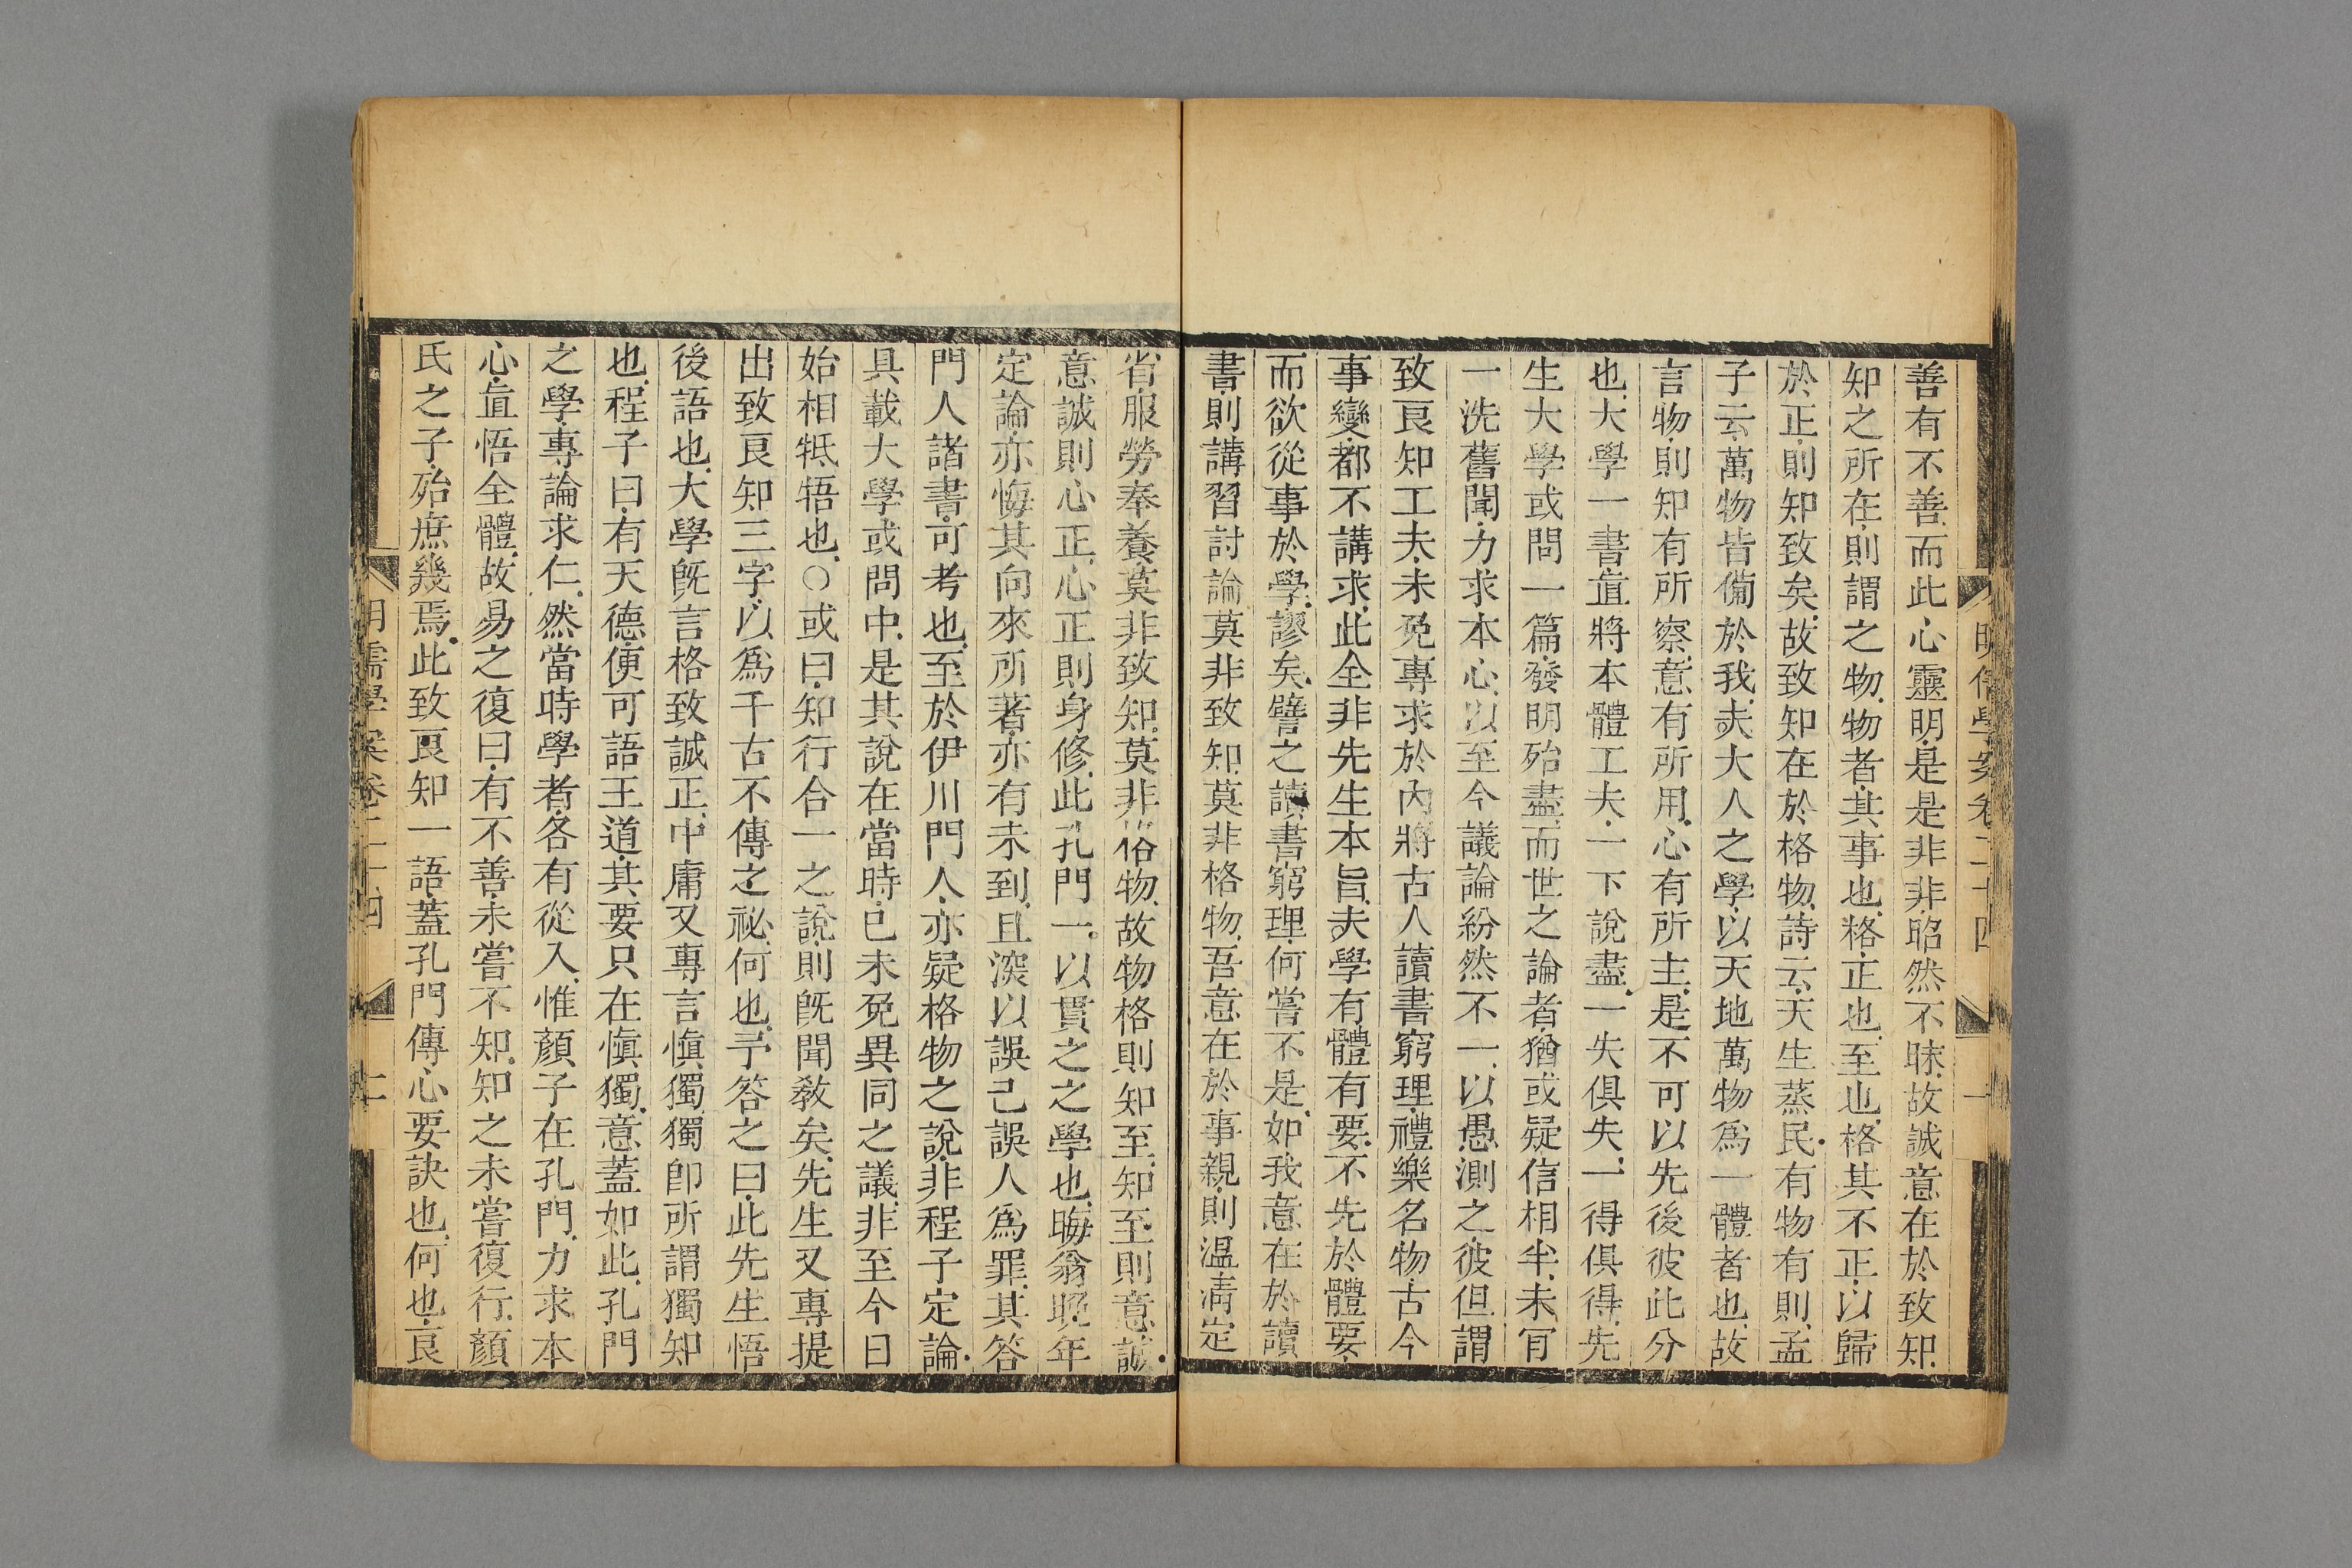 明儒學案卷二十四
一
善有不善、而此心靈明、是是非非、昭然不昧、故誠意在於致知、
知之所在、則謂之物、物者、其事也、格、正也、至也、格其不正、以歸
於正、則知致矣、故致知在於格物、詩云、天生蒸民、有物有則、孟
子云、萬物皆備於我、夫大人之學、以天地萬物爲一體者也、故
言物、則知有所察、意有所用、心有所主、是不可以先後彼此分
也、大學一書、直將本體工夫、一下說盡、一失俱失、一得俱得、先
生大學或問一篇、發明殆盡、而世之論者、猶或疑信相半、未肯
一洗舊聞、力求本心、以至今議論紛然不一、以愚測之、彼但謂
致良知工夫、未免專求於內、將古人讀書窮理、禮樂名物、古今
事變、都不講求、此全非先生本旨、夫學有體有要、不先於體要、
而欲從事於學、謬矣、譬之讀書窮理、何嘗不是、如我意在於讀
書、則講習討論、莫非致知、莫非格物、吾意在於事親、則溫凊定
省、服勞奉養、莫非致知、莫非格物、故物格則知至、知至則意誠、
意誠則心正、心正則身修、此孔門一以貫之之學也、晦翁晚年
定論、亦悔其向來所著、亦有未到、且深以誤己誤人爲罪、其答
門人諸書、可考也、至於伊川門人、亦疑格物之說、非程子定論、
具載大學或問中、是其說在當時、已未免異同之議、非至今日
始相牴牾也、○或曰、知行合一之說、則旣聞敎矣、先生又專提
出致良知三字、以爲千古不傳之祕、何也、予答之曰、此先生悟
後語也、大學旣言格致誠正、中庸又專言愼獨、獨卽所謂獨知
也、程子曰、有天德、便可語王道、其要只在愼獨、意蓋如此、孔門
之學、專論求仁、然當時學者、各有從入、惟顏子在孔門、力求本
心、直悟全體、故易之復曰、有不善、未嘗不知、知之未嘗復行、顏
氏之子、殆庶幾焉、此致良知一語、蓋孔門傳心要訣也、何也、良
明儒學案卷二十四
二